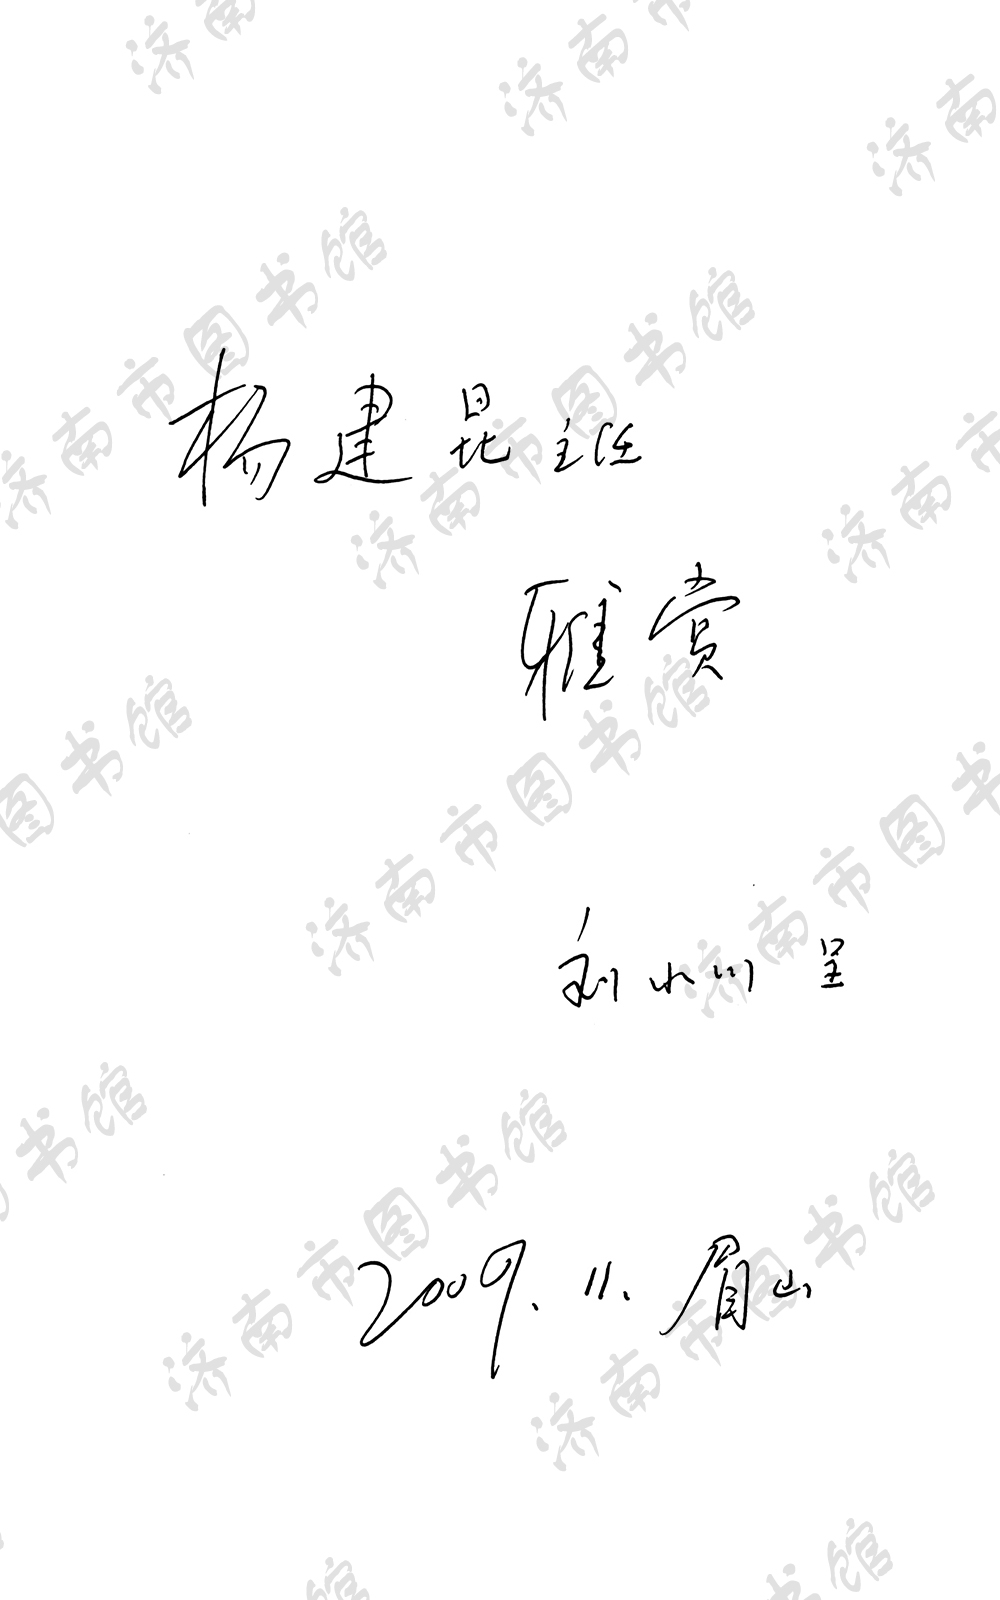 杨建昆主任
雅赏
刘小川 呈
2009.11.眉山
济南市图书馆